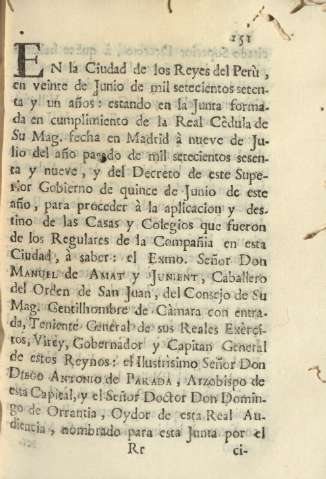 151
EN la Ciudad de los Reyes del Perù,
en veinte de Junio de mil setecientos seten-
ta y un años: estando en la Junta forma-
da en cumplimiento de la Real Cèdula de
Su Mag. fecha en Madrid à nueve de Ju-
lio del año pasado de mil setecientos sesen-
ta y nueve, y del Decreto de este Supe-
rior Gobierno de quince de Junio de este
año, para proceder à la aplicacion y des-
tino de las Casas y Colegios que fueron
de los Regulares de la Compañia en esta
Ciudad, à saber: el Exmo. Señor Don
MANUEL DE AMAT Y JUNIENT, Caballero
del Orden de San Juan, del Consejo de Su
Mag. Gentilhombre de Càmara con entra-
da, Teniente General de sus Reales Exérci-
tos, Virey, Gobernador y Capitan General
de estos Reynos: el Ilustrisimo Señor Don
DIEGO ANTONIO DE PARADA, Arzobispo de
esta Capital, y el Señor Doctor Don Domin-
go de Orrantia, Oydor de esta Real Au-
diencia, nombrado para esta Junta por el
Rr ci-